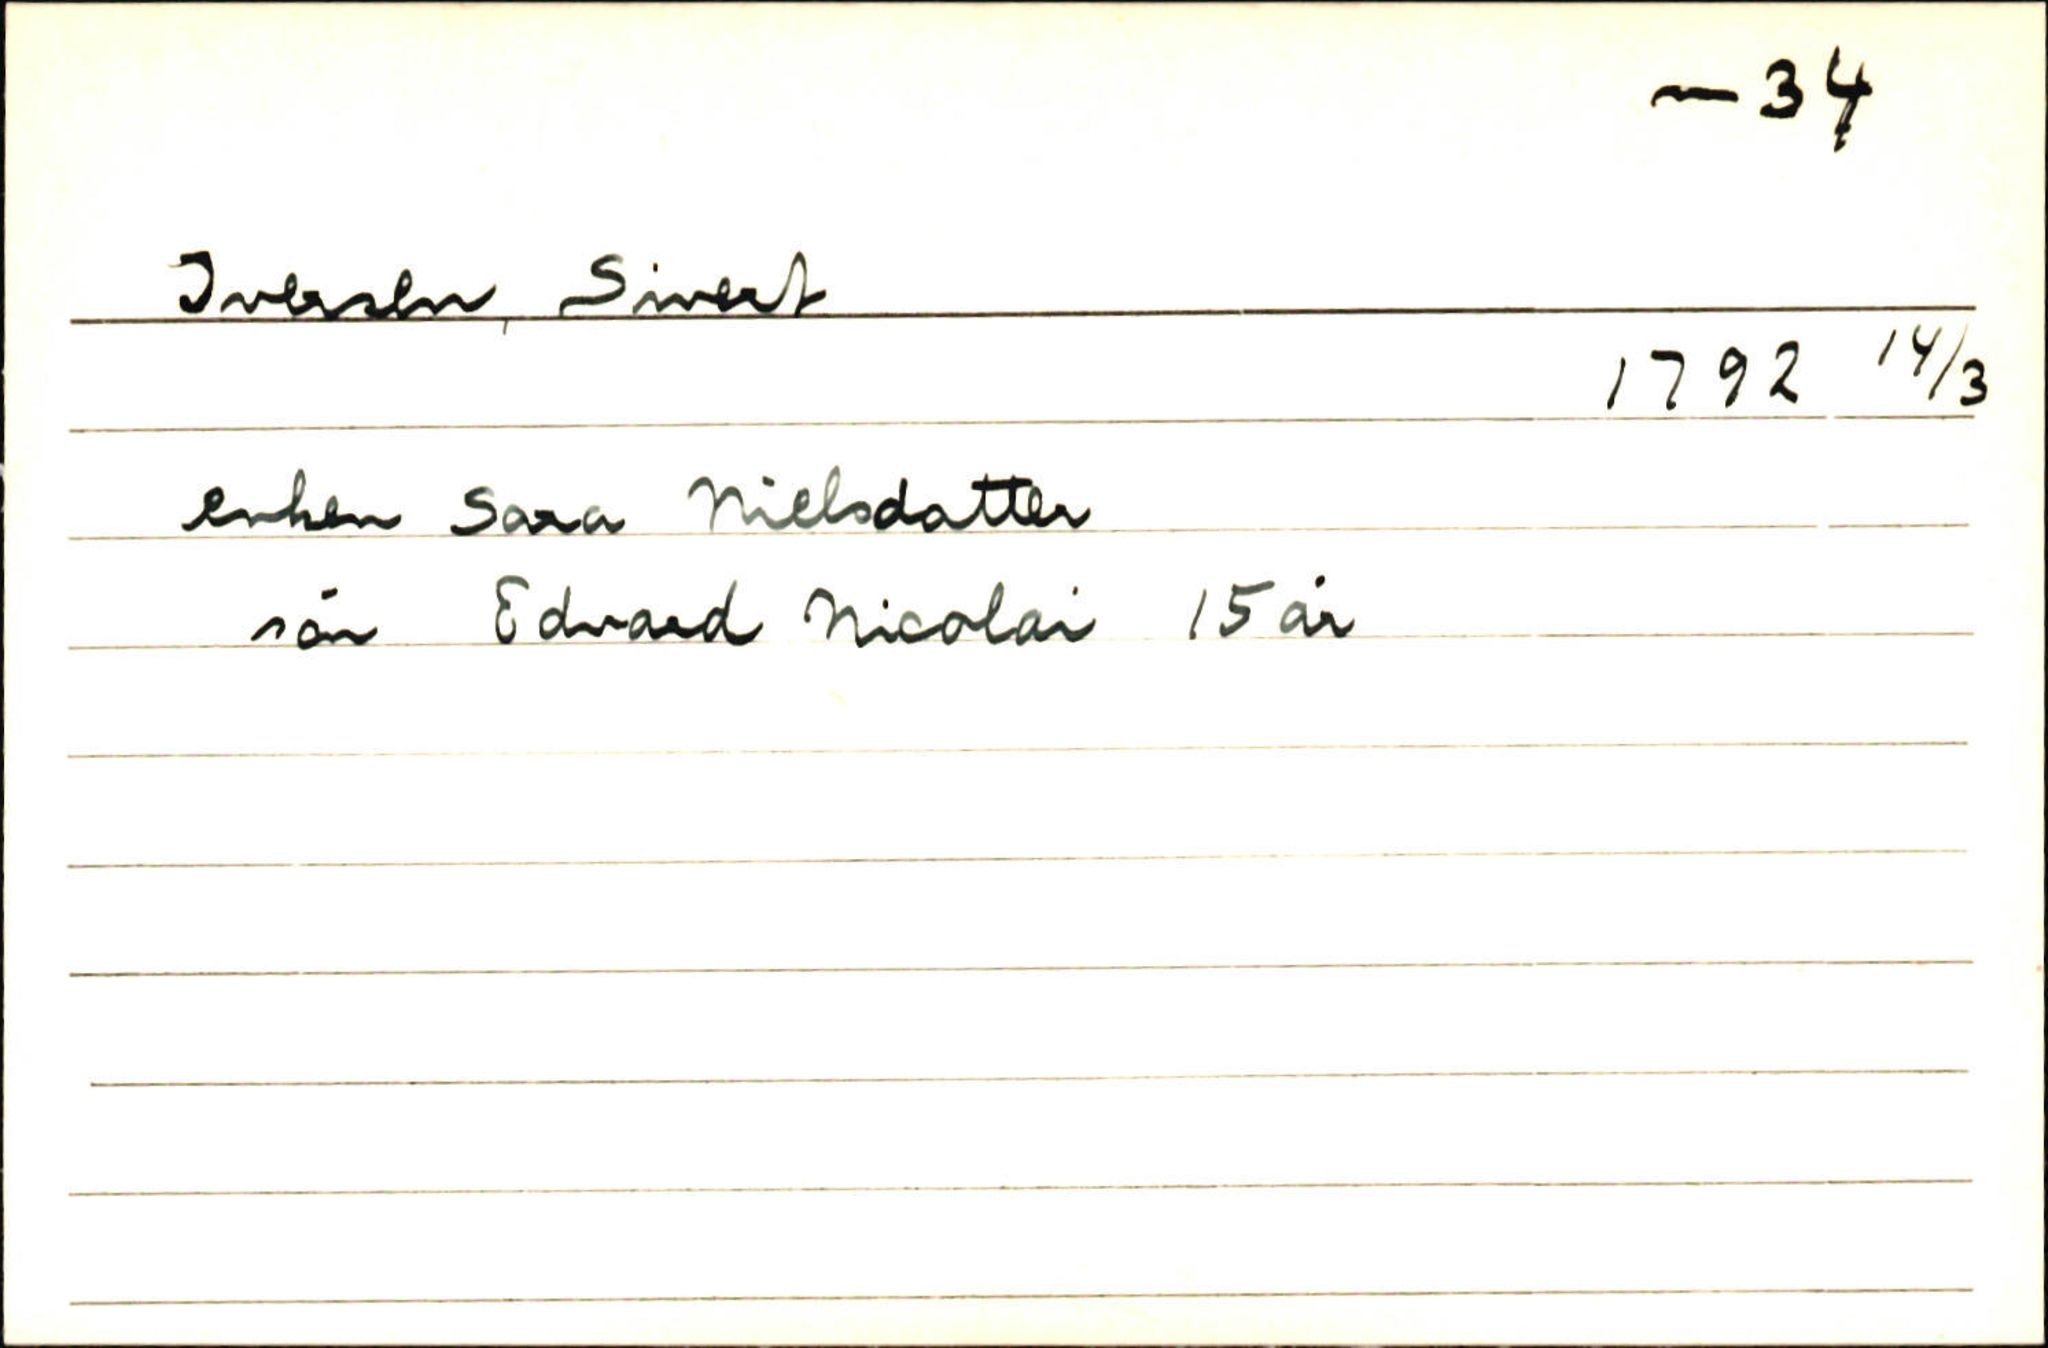 ~34
Iversen, Sivert
1792 14/3
enken Sara Nielsdatter
sön Edvard Nicolai 15 år